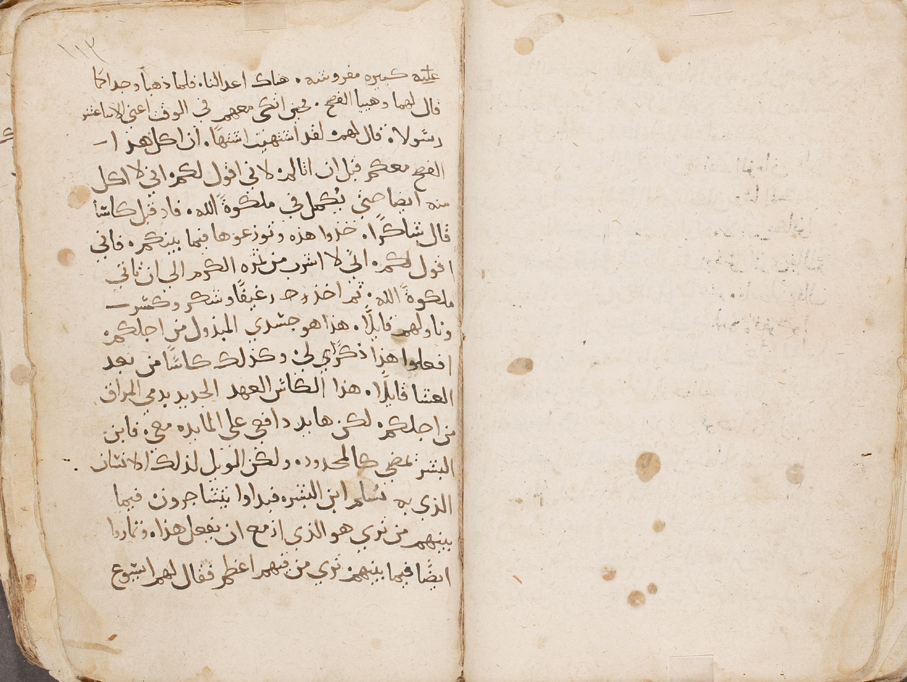 ١١٣
علية كبيره مفروشه. هناك اعدا لنا. فلما ذهبا وجدا كما
قال لهما وهييا الفصح. حين اتكى معهم في الوقت اعني الاثنا عشر
رسولا. قال لهم: لقد اشتهيت اشتهاً. ان اكل هذا
الفصح معكم قبل ان اتالم. لاني اقول لكم. اني لا اكل
منه ايضا حتي يكمل في ملكوة الله. فاد قبل كاسًا
قال شاكرًا. خذوا هذه وتوزعوها فيما بينكم. فاني
اقول لكم. اني لا اشرب من ثمرة الكرم الى ان تاتي
ملكوة الله. ثم اخذ رغيفًا وشكر وكسر
وناولهم قايلًا. هذا هو جسدي المبذول من اجلكم
افعلوا هذا ذكراي لي وكذلك كاسًا من بعد
العشا قايلًا. هذا الكاس العهد الجديد بدمي المراق
من اجلكم. لكن ها يد دافعي على المايده معي. فابن
البشر يمضي كالمحدود. ولكن الويل لذلك الانسان
الذي به تسلم ابن البشر. فبداوا يتشاجرون فيما
بينهم من تري هو الذي ازمع ان يفعل هذا. وتماروا
ايضًا فيما بينهم. تري من فيهم اعظم فقال لهم ايسوع